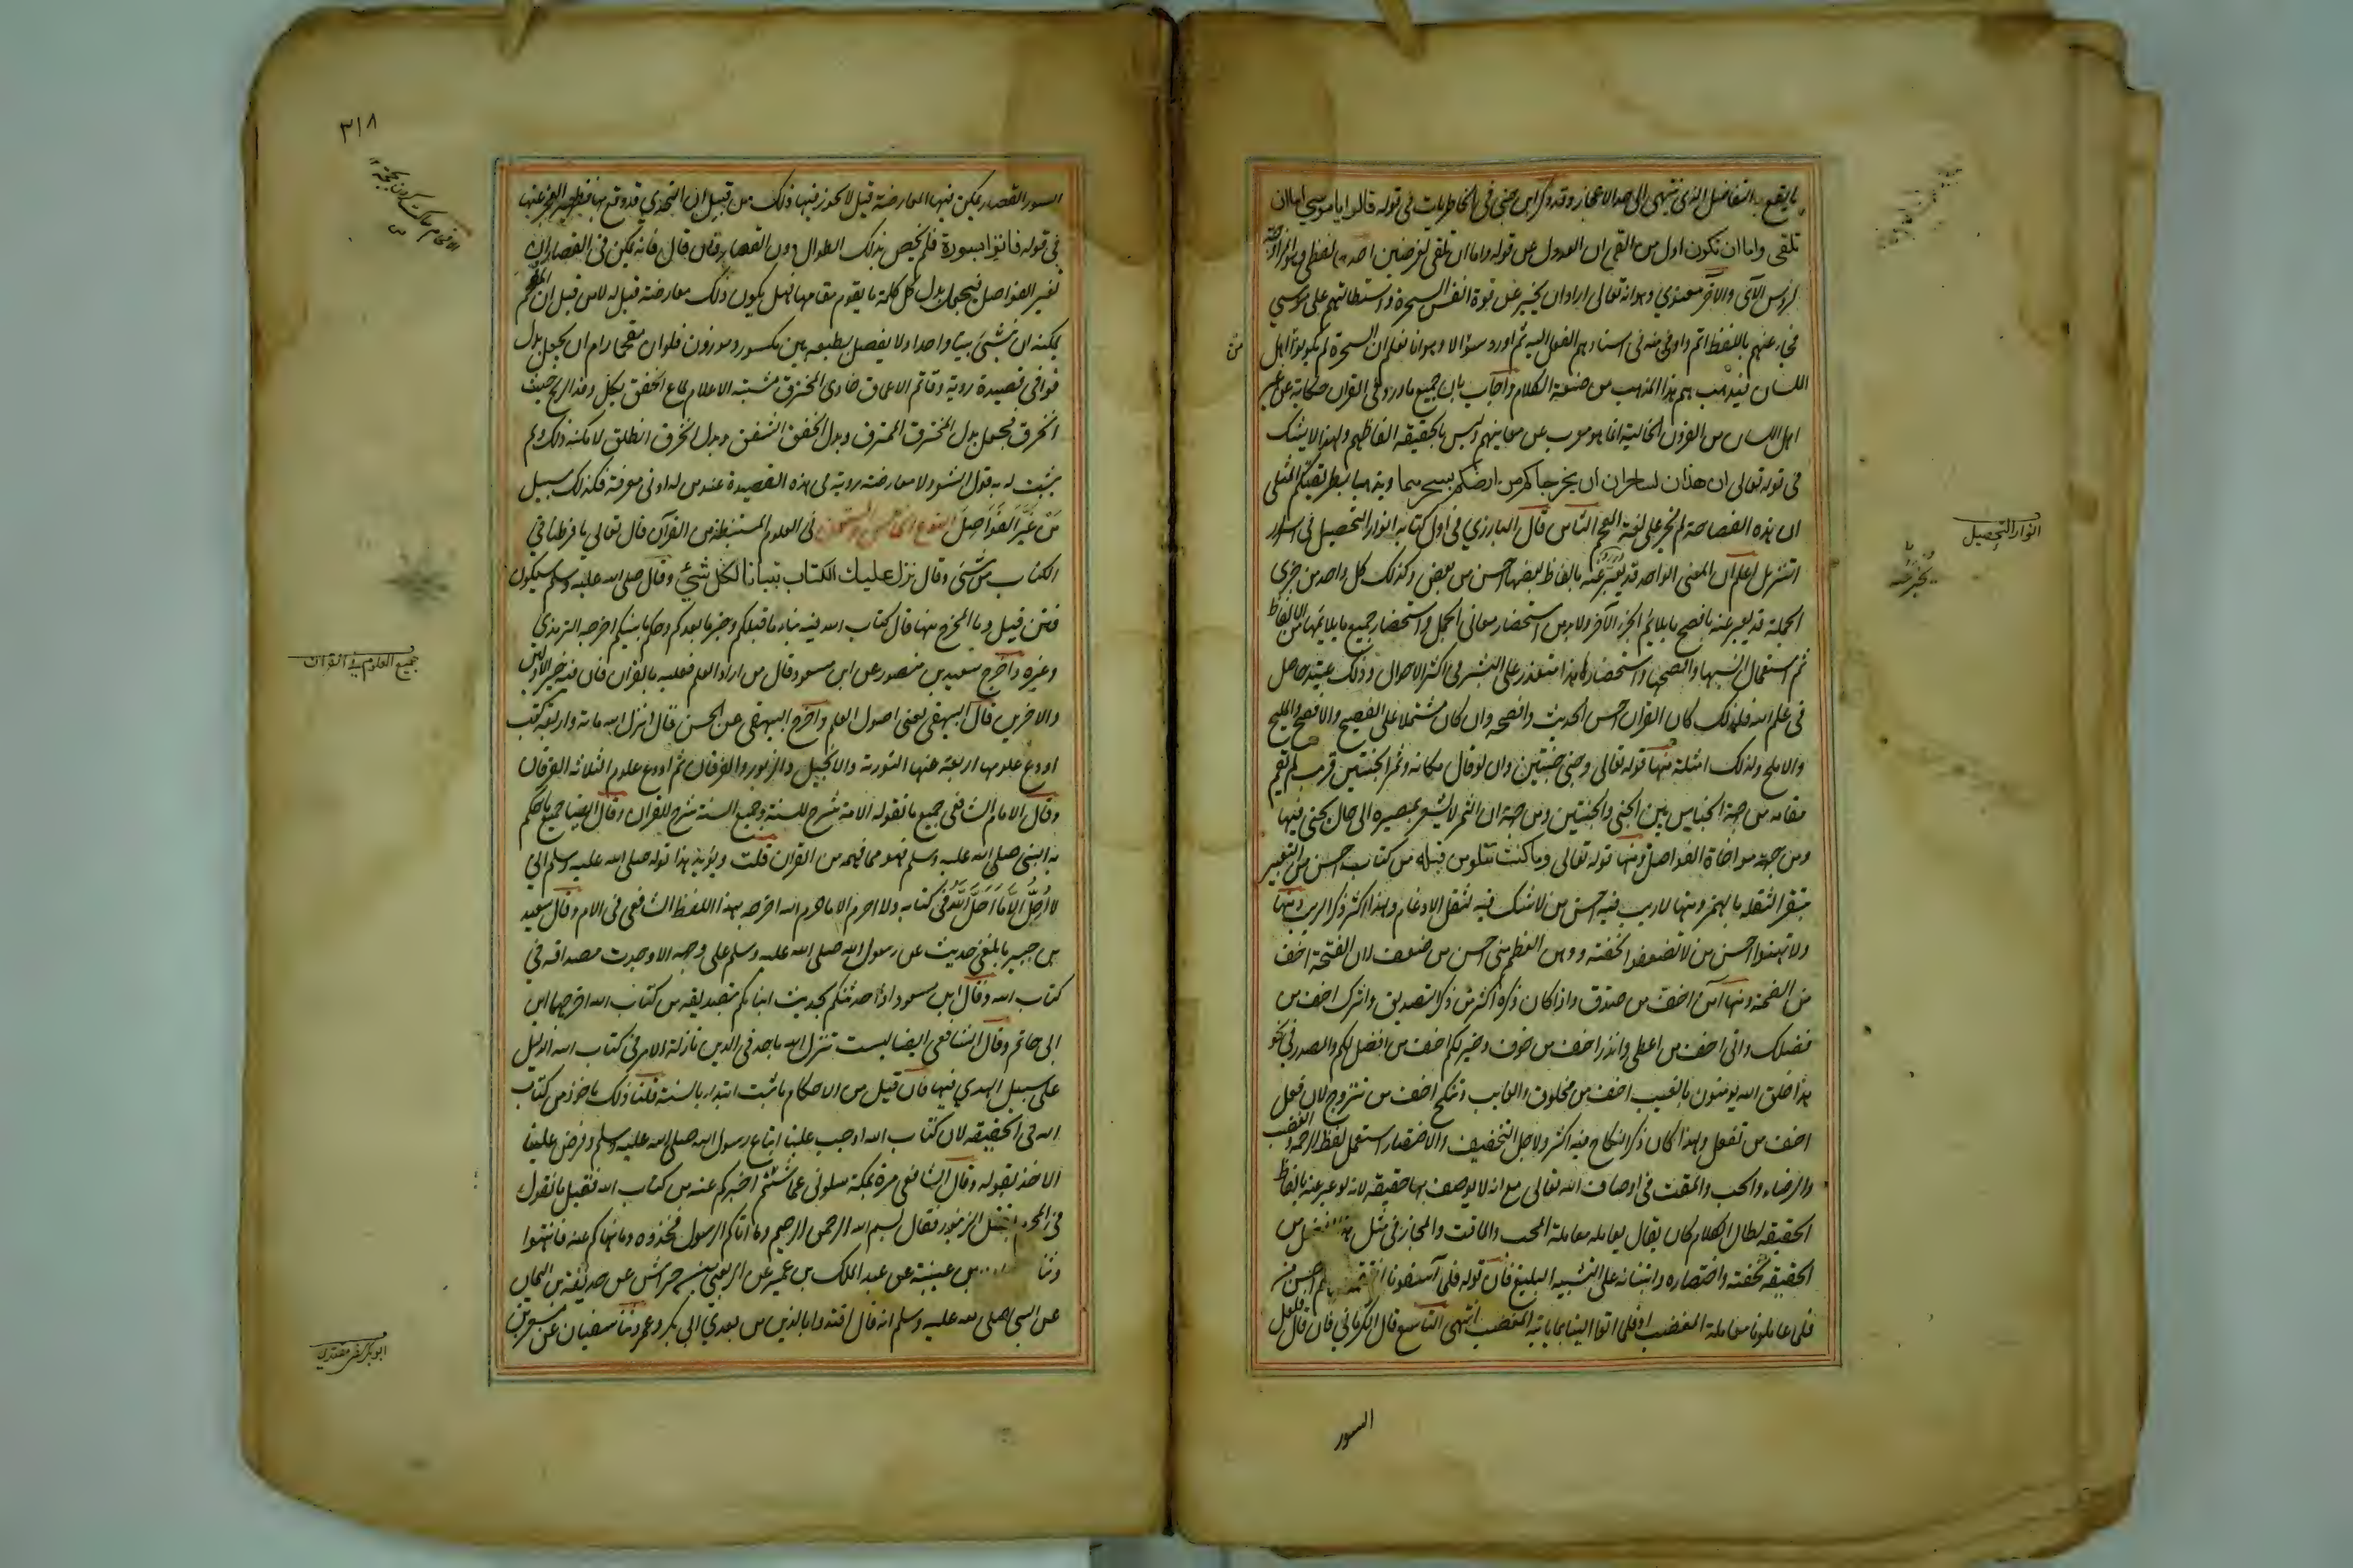 ما يقع به التفاضل الذى ينتهى الى حد الاعجاز وقد ذكر ابن جنى فى الخاطريات فى قوله قالوا يا موسى اما ان
تلقى واما ان نكون اول من القى ان العدول عن قوله واما ان نلقى لغرضين احدهما لفظى وهو المزاوجة
لرؤس الآى والآخر معنوي وهو انه تعالى اراد ان يخبر عن قوة انفس السحرة واستطالتهم على موسى
فجاء عنهم باللفظ اتم واوفى منه فى اسنادهم الفعل اليه ثم اورد سؤالا وهو انا نعلم ان السحرة لم يكونوا اهل
اللسان فيذهب بهم هذا المذهب من صنعة الكلام واجاب بان جميع ما ورد فى القران حكاية عن غير
اهل اللسان من القرون الخالية انما هو معرب عن معانيهم وليس بحقيقة الفاظهم ولهذا لا يشك
فى قوله تعالى ان هذان لساحران ان يخرجاكم من ارضكم بسحرهما ويذهبا بطريقتكم المثلى
ان هذه الفصاحة لم تجر على لغة العجم الثامن قال البارزي فى اول كتابه انوار التحصيل فى اسرار
التنزيل اعلم ان المعنى الواحد قد يعبر عنه بالفاظ بعضها احسن من بعض وكذلك كل واحد من جزئى
الجملة قد يعبر عنه بافصح ما يلائم الجزء الآخر ولابد من استحضار معانى الجمل واستحضار جميع ما يلائمها من الالفاظ
ثم استعمال انسبها وافصحها واستحضار هذا متعذر على البشر فى اكثر الاحوال وذلك عتيد حاصل
فى علم الله فلذلك كان القران احسن الحديث وافصحه وان كان مشتملا على الفصيح والافصح والمليح
والاملح ولذلك امثلة منها قوله تعالى وجنى الجنتين دان لو قال مكانه وثمر الجنتين قريب لم يقم
مقامه من جهة الجناس بين الجنى والجنتين ومن جهة ان الثمر لا يشعر بمصيره الى حال يجنى فيها
ومن جهة مواخاة الفواصل ومنها قوله تعالى وما كنت تتلو من قبله من كتاب احسن من التعبير
بتقرا لثقله بالهمز ومنها لا ريب فيه احسن من لا شك فيه لثقل الادغام ولهذا كثر ذكر الريب ومنها
ولا تهنوا احسن من لا تضعفوا لخفته ووهن العظم منى احسن من ضعف لان الفتحة اخف
من الضمة ومنها آمن اخف من صدق ولذا كان ذكره اكثر من ذكر التصديق وآثرك اخف من
فضلك وآتى اخف من اعطى وانذر اخف من خوف وخير لكم اخف من افضل لكم والمصدر فى نحو
هذا خلق الله يومنون بالغيب اخف من مخلوق والغايب وتنكح اخف من تتزوج لان فعل
اخف من تفعل ولهذا كان ذكر النكاح فيه اكثر ولاجل التخفيف والاختصار استعمل لفظ الرحمة والغضب
والرضاء والحب والمقت فى اوصاف الله تعالى مع انه لا يوصف بها حقيقة لانه لو عبر عنه بالفاظ
الحقيقة لطال الكلام كان يقال يعامله معاملة المحب والماقت والمجاز فى مثل هذا افضل من
الحقيقة لخفته واختصاره وابتنائه على التشبيه البليغ فان قوله فلما آسفونا انتقمنا منهم احسن من
فلما عاملونا معاملة المغضب او فلما اتوا الينا بما ياتيه المغضب انتهى التاسع قال الرمانى فان قال فلعل
السور
انوار التحصيل
السور القصار يمكن فيها المعارضة قيل لا يجوز فيها ذلك من قبل ان التحدي قد وقع بها فظهر العجز عنها
فى قوله فأتوا بسورة فلم يخص بذلك الطوال دون القصار فان قال فانه يمكن فى القصار ان
تغير الفواصل فيجعل بدل كل كلمة ما يقوم مقامها فهل يكون ذلك معارضة قيل له لا من قبل ان المفحم
يمكنه ان ينشئ بيتا واحدا ولا يفصل بطبعه بين مكسور وموزون فلو ان مفحما رام ان يجعل بدل
قوافى قصيدة روبة وقاتم الاعماق خاوى المخترق مشتبه الاعلام لماع الخفق بكل وفد الريح حيث
انخرق فجعل بدل المخترق الممزق وبدل الخفق الشفق وبدل انخرق انطلق لامكنه ذلك ولم
يثبت له به قول الشعر ولا معارضة روبة فى هذه القصيدة عند من له ادنى معرفة فكذلك سبيل
من غير الفواصل النوع الخامس والستون فى العلوم المستنبطة من القرآن قال تعالى ما فرطنا فى
الكتاب من شئ وقال نزلنا عليك الكتاب تبيانا لكل شئ وقال صلى الله عليه وسلم سيكون
فتن قيل وما المخرج منها قال كتاب الله فيه نباء ما قبلكم وخبر ما بعدكم وحكم ما بينكم اخرجه الترمذى
وغيره واخرج سعيد بن منصور عن ابن مسعود قال من اراد العلم فعليه بالقران فان فيه خبر الاولين
والاخرين قال البيهقى يعنى اصول العلم واخرج البيهقى عن الحسن قال انزل الله مائة واربعة كتب
اودع علومها اربعة منها التورية والانجيل والزبور والفرقان ثم اودع علوم الثلاثة الفرقان
وقال الامام الشافعى جميع ما تقوله الامة شرح للسنة وجميع السنة شرح للقران وقال ايضا جميع ما حكم
به النبى صلى الله عليه وسلم فهو مما فهمه من القران قلت ويؤيد هذا قوله صلى الله عليه وسلم انى
لا احل الا ما احل الله فى كتابه ولا احرم الا ما حرم الله اخرجه بهذا اللفظ الشافعى فى الام وقال سعيد
بن جبير ما بلغنى حديث عن رسول الله صلى الله عليه وسلم على وجهه الا وجدت مصداقه فى
كتاب الله وقال ابن مسعود اذا حدثتكم بحديث انباتكم بتصديقه من كتاب الله اخرجهما ابن
ابى حاتم وقال الشافعى ايضا ليست تنزل الله باحد فى الدين نازلة الا فى كتاب الله الدليل
على سبيل الهدي فيها فان قيل من الاحكام ما ثبت ابتداء بالسنة قلنا ذلك ماخوذ من كتاب
الله فى الحقيقة لان كتاب الله اوجب علينا اتباع رسول الله صلى الله عليه وسلم وفرض علينا
الاخذ بقوله وقال الشافعى مرة بمكة سلونى عما شئتم اخبركم عنه من كتاب الله فقيل ما تقول
فى المحرم يقتل الزنبور فقال بسم الله الرحمن الرحيم وما آتاكم الرسول فخذوه وما نهاكم عنه فانتهوا
وثنا بن عيينة عن عبد الملك بن عمير عن ربعى بن حراش عن حذيفة بن اليمان
عن النبى صلى الله عليه وسلم انه قال اقتدوا بالذين من بعدي ابى بكر وعمر وثنا سفيان عن مسعر بن
٣١٨
جميع العلوم فى القران